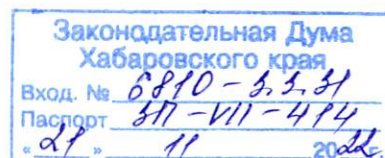 Законодательная Дума
Хабаровского края
Вход. № 6810-3.3.31
Паспорт ЗП-VII-414
« 21 » 11 2022г.